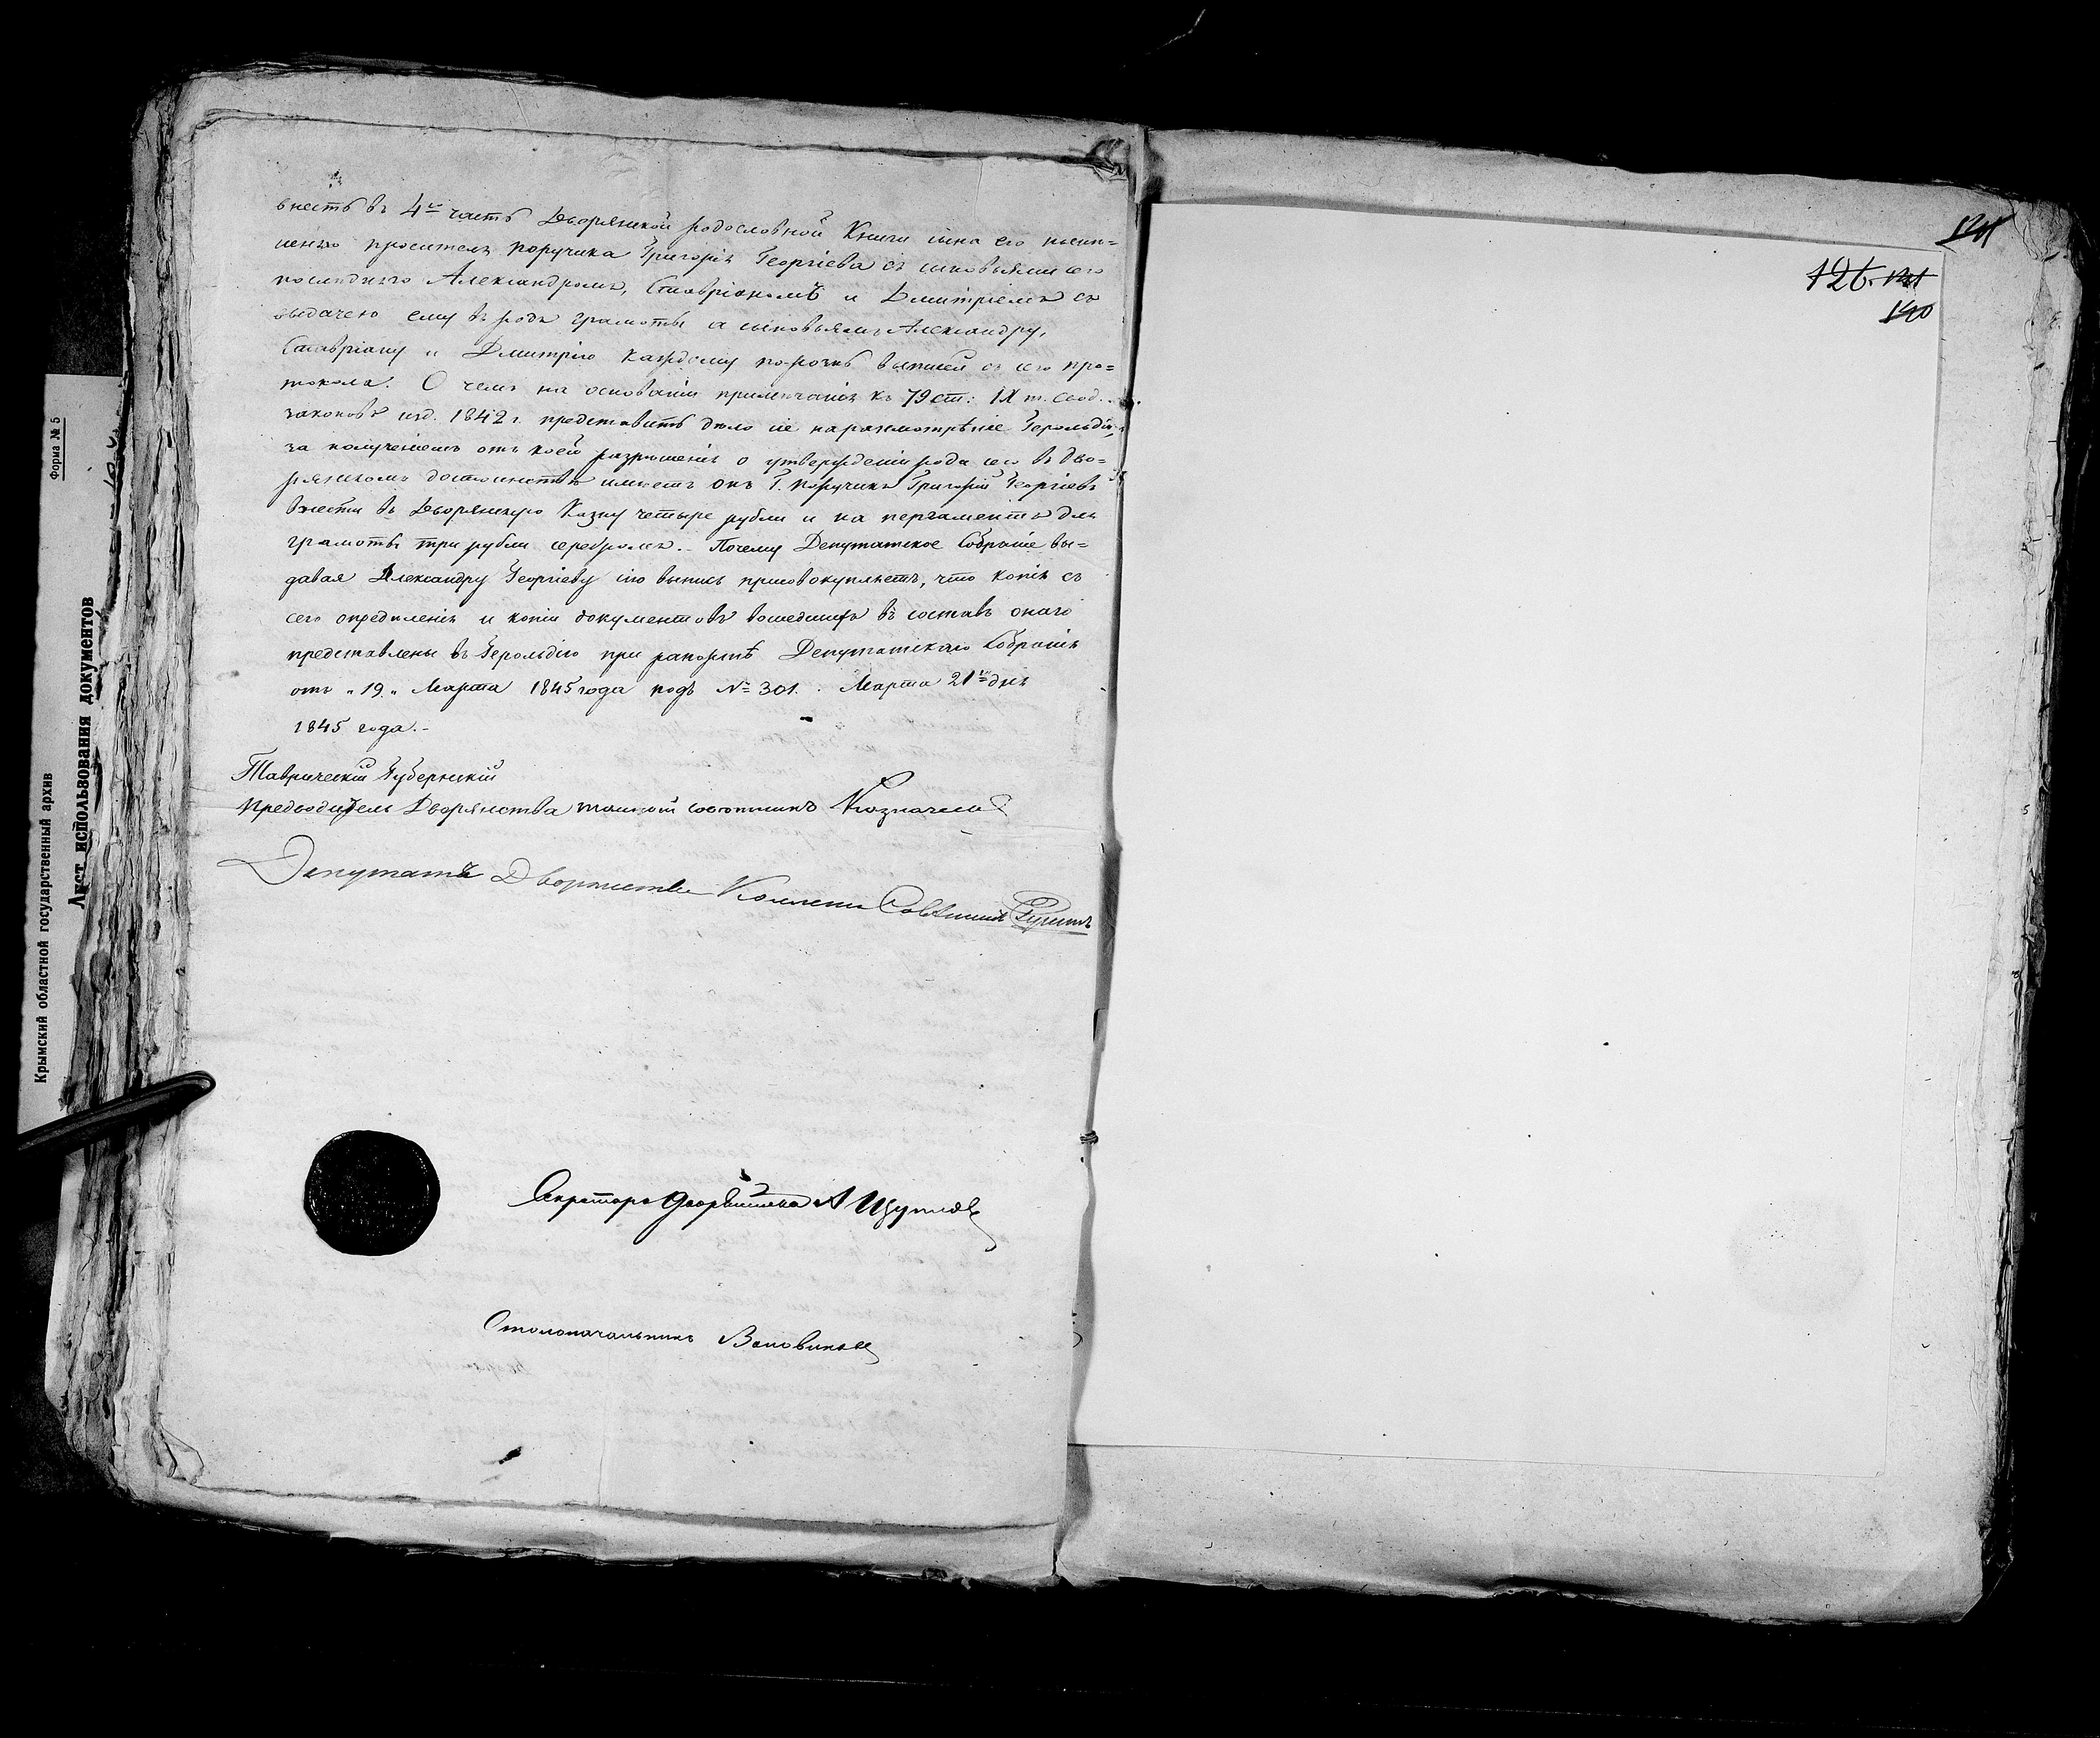 внесть въ 4ю часть Дворянской родословной Книги сына его
просителя поручика Григорія Георгіева съ сыновьями его
послѣдняго Александромъ, Ставріаномъ и Дмитріемъ съ
выдачею ему въ родъ грамоты а сыновьямъ Александру,
Ставріану и Дмитрію каждому по рознь выписей съ сего про=
токола. О чемъ на основаніи примѣчанія къ 79 ст: IX т. свод.
законовъ изд. 1842 г. представить дѣло сіе на разсмотрѣніе Герольдіи,
за полученіемъ отъ коей разрѣшенія о утвержденіи рода его въ дво=
рянскомъ достоинствѣ имѣетъ онъ Г. Поручикъ Григорій Георгіевъ
внести въ Дворянскую Казну четыре рубли и на пергаментъ для
грамоты три рубли серебромъ. - Почему Депутатское Собраніе вы=
давая Александру Георгіеву сію выпись присовокупляетъ, что копія съ
сего опредѣленія и копіи документовъ вошедшихъ въ составъ онаго
представлены въ Герольдію при рапортѣ Депутатскаго Собранія
отъ „19„ Марта 1845 года подъ № 301. Марта 21го дня
1845 года.-
Таврическій Губернскій
Предводитель Дворянства тайный совѣтникъ Казначеев
Депутатъ Дворянства Коллежс Совѣтникъ
Секретарь Дворянства А Щупловъ
Столоначальникъ
126. 121
120
121
Форма № 5
Крымский областной государственный архив
Лист использования документов